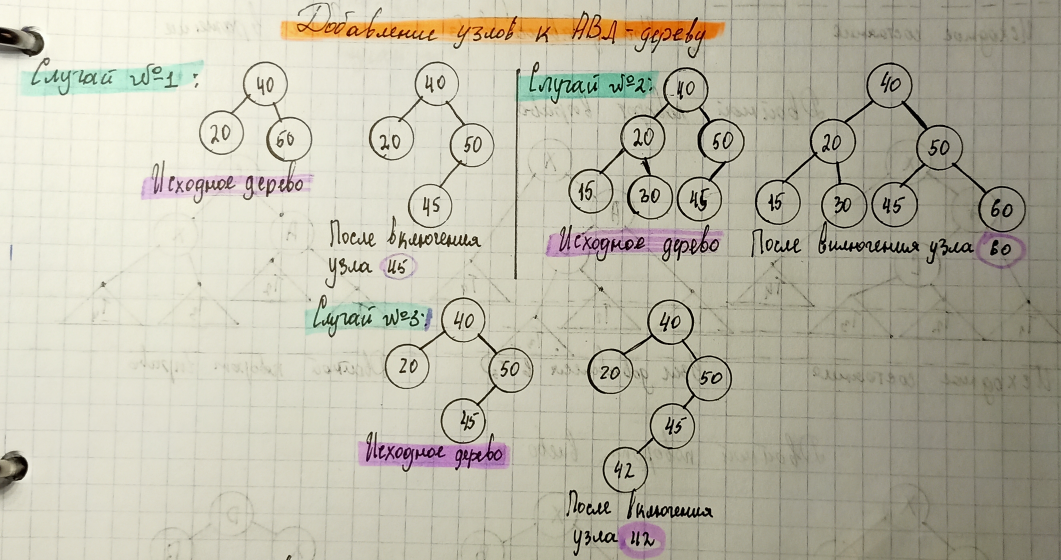 Добавление узлов к АВЛ-дереву
Случай №1:
40
20 50
Исходное дерево
40
20 50
45
После включения
узла 45
Случай №2:
40
20 50
15 30 45
Исходное дерево
40
20 50
15 30 45 60
После включения узла 60
Случай №3:
40
20 50
45
Исходное дерево
40
20 50
45
42
После включения
узла 42